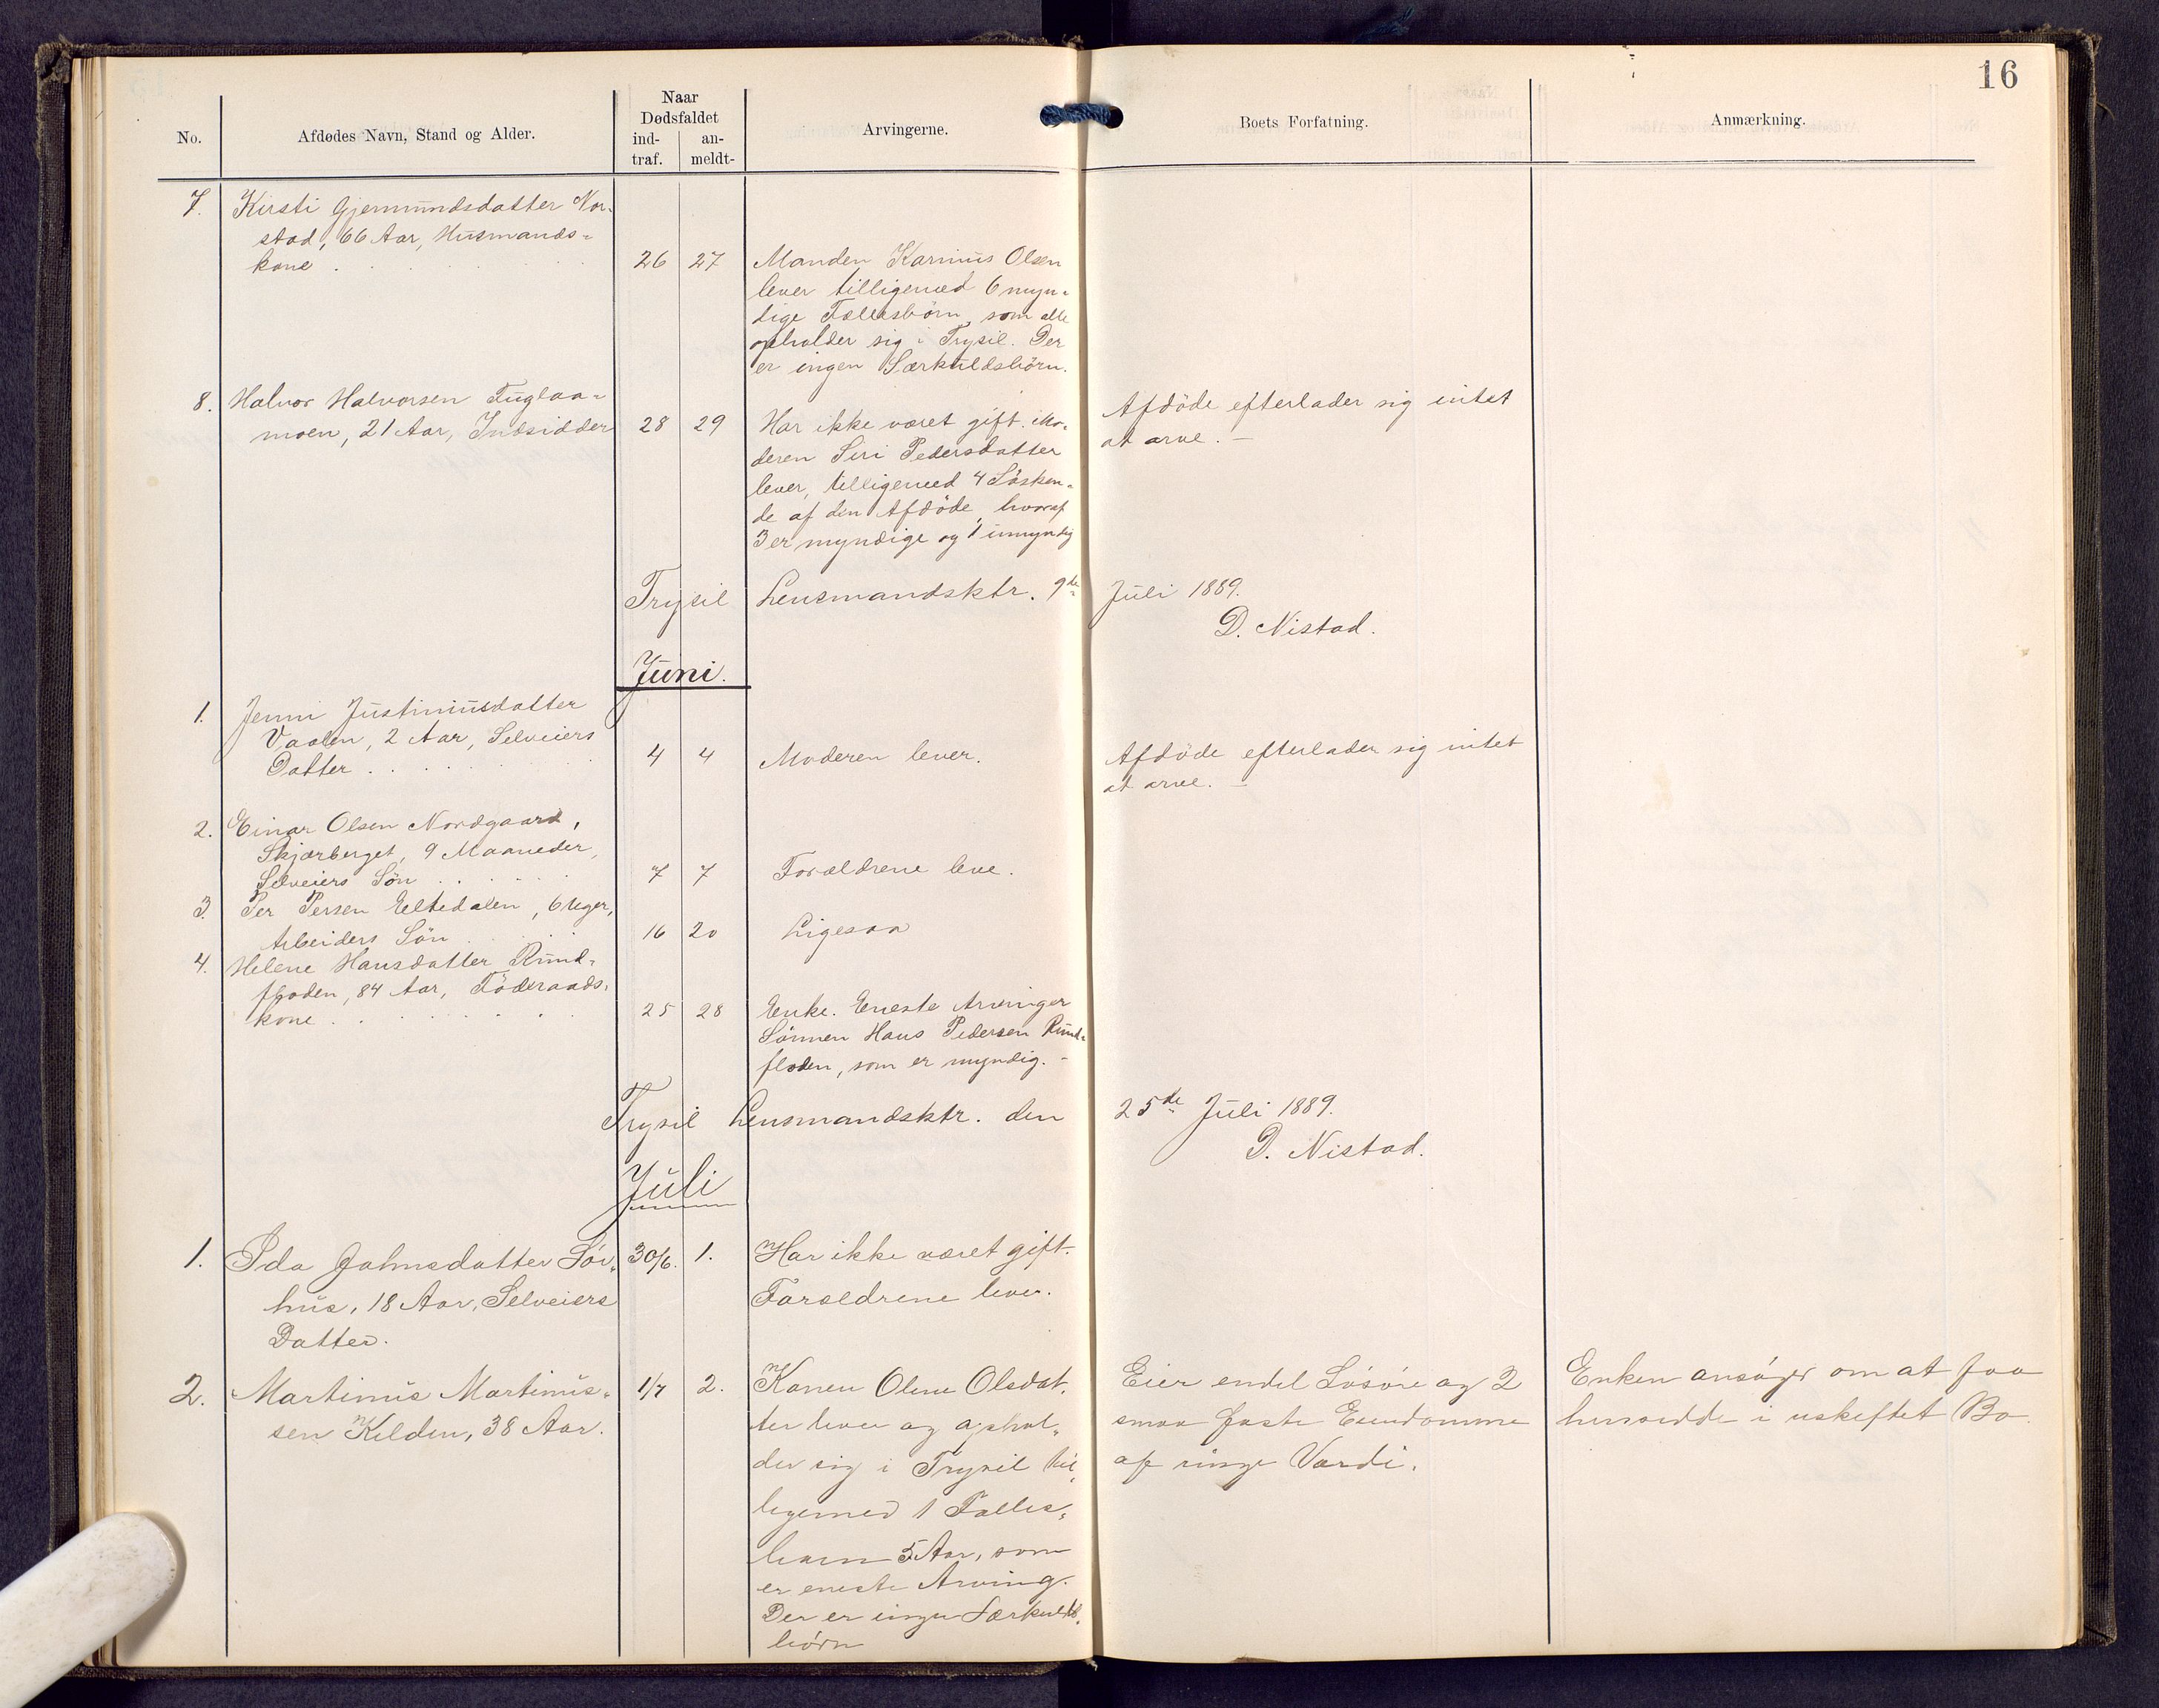 16
No.
Afdødes Navn, Stand og Alder.
Naar
Dødsfaldet
ind-
traf.
an-
meldt-
Arvingerne.
Boets Forfatning.
Anmærkning.
7. Kirsti Gjermundsdatter Nor-
stad, 66 Aar, Husmands-
kone . . . 26 27
Manden Karinus Olsen
lever tilligemed 6 myn-
dige Fællesbörn, som alle
opholder sig i Trysil. Der
er ingen Særkuldsbörn.
8. Halvor Halvorsen Fuglaa-
moen, 21 Aar, Indsidder 28 29
Har ikke været gift. Mo-
deren Siri Pedersdatter
lever, tilligemed 4 Sösken-
de af den Afdöde, hvoraf
3 er myndige og 1 umyndig
Afdöde efterlader sig intet
at arve. –
Trysil Lensmandsktr. 9de Juli 1889.
D. Nistad.
Juni.
1. Jenni Justiniusdatter
Vaalen, 2 Aar, Selveiers
Datter . . . 4 4 Moderen lever.
Afdöde efterlader sig intet
at arve. –
2. Einar Olsen Nordgaard,
Skjærberget, 9 Maaneder,
Selveiers Sön . . . 7 7 Forældrene leve.
3. Per Persen Eltedalen, 6 Uger,
Arbeiders Sön . . . 16 20 Ligesaa
4. Helene Hansdatter Rund-
floden, 84 Aar, Föderaads-
kone . . . 25 28
Enke. Eneste Arvinger
Sönnen Hans Pedersen Rund-
floden, som er myndig. –
Trysil Lensmandsktr. den 25de Juli 1889.
D. Nistad.
Juli
1. Ida Johnsdatter Sör-
hus, 18 Aar, Selveiers
Datter.
30/6. 1.
Har ikke været gift.
Forældrene lever.
2. Martinus Martinus-
sen Kilden, 38 Aar.
1/7 2.
Konen Oline Olsdat-
ter lever og ophol-
der sig i Trysil til-
ligemed 1 Fælles-
barn 5 Aar, som
er eneste Arving.
Der er ingen Særkulds-
börn
Eier endel Lösöre og 2
smaa faste Eiendomme
af ringe Værdi.
Enken ansöger om at faa
hensidde i uskiftet Bo